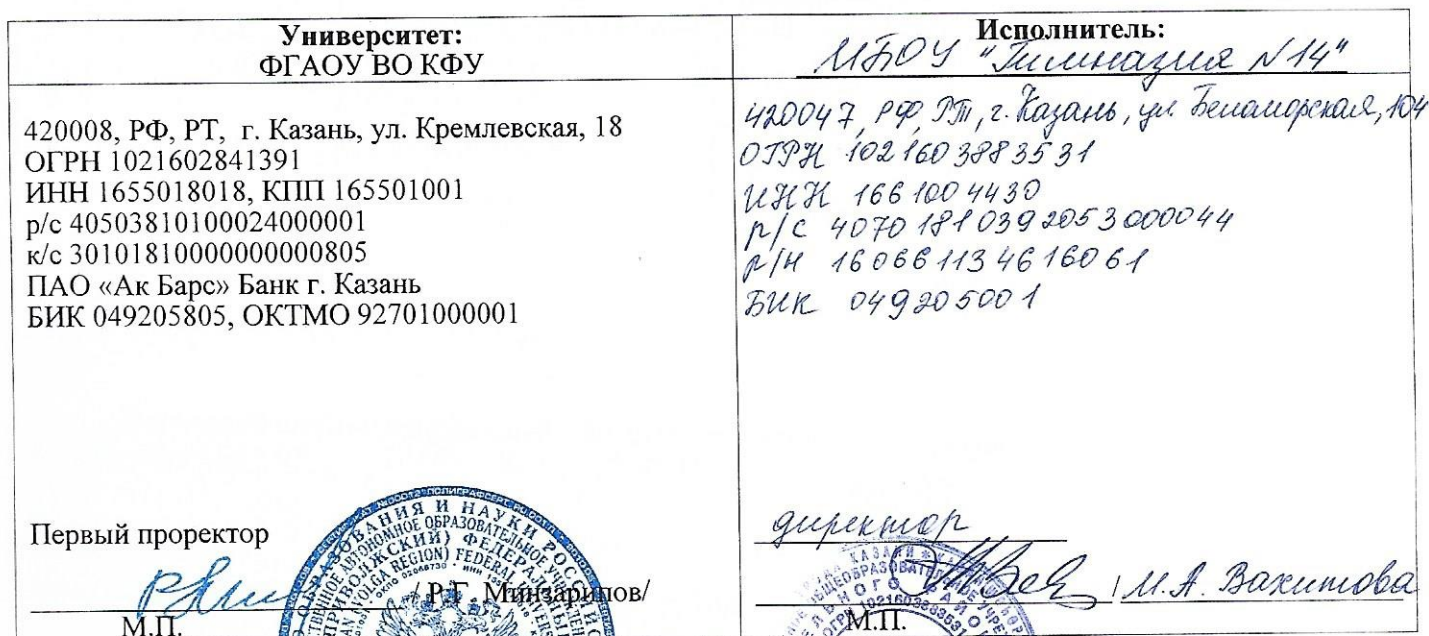 Университет:
ФГАОУ ВО КФУ
420008, РФ, РТ, г. Казань, ул. Кремлевская, 18
ОГРН 1021602841391
ИНН 1655018018, КПП 165501001
р/с 40503810100024000001
к/с 30101810000000000805
ПАО «Ак Барс» Банк г. Казань
БИК 049205805, ОКТМО 92701000001
Первый проректор
/ Р.Г. Минзарипов/
М.П.
Исполнитель:
МБОУ "Гимназия N14"
420047, РФ, РТ, г. Казань, ул. Беломорская, 104
ОГРН 1021603883531
ИНН 1661004430
р/с 40701810392053000044
р/н 160661134616061
БИК 049205001
директор
/ М.А. Вахитова
М.П.